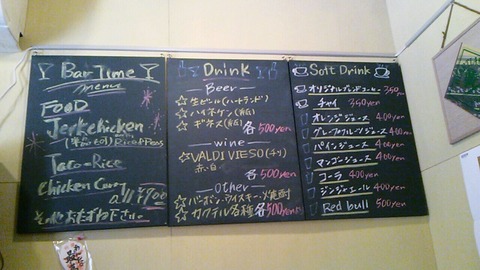 Bar Time
menu
FOOD
Jerkchicken
Rice&Peas
Taco-Rice
Chicken Curry
all ¥700
その他おたずね下さい
Drink
Beer
☆生ビール(ハートランド)
☆ハイネケン(瓶)
☆ギネス(瓶) 各500yen
wine
☆VALDIVIESO(チリ)
赤・白
各500yen
other
☆バーボン・ウイスキー・焼酎
☆カクテル各種 各500yen
Soft Drink
オリジナルブレンドコーヒー 350yen
チャイ 350yen
オレンジジュース 400yen
グレープフルーツジュース 400yen
パインジュース 400yen
マンゴージュース 400yen
コーラ 400yen
ジンジャエール 400yen
Red bull 500yen